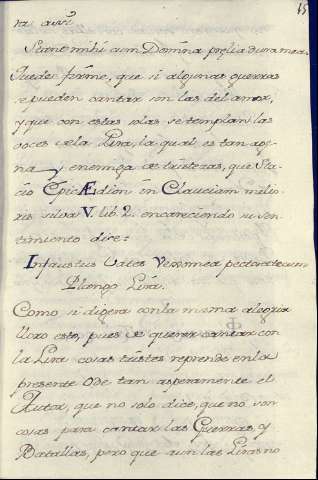 15
Stant mihi cum Domina prælia dura mea.
Puede firme, que si algunas guerras
se pueden cantar son las del amor,
y que con estas solas se templan las
voces de la Lira, la qual es tan age-
na y enemiga de tristezas, que Sta-
cio Epicædion in Claudiam
silva V. lib. 2. encareciendo su sen-
timiento dice:
Infaustus Vates
Plango Lira.
Como si dijera con la misma alegria
lloro esto, pues el querer cantar con
la Lira cosas tristes reprende en la
presente Ode tan asperamente el
Autor, que no solo dice, que no son
cosas para cantar las Guerras, y
Batallas, pero que aun las Liras no